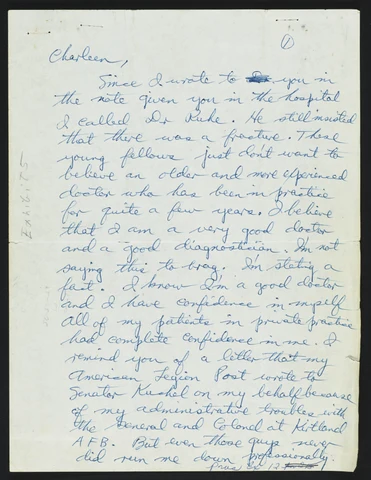 1
Charleen,
Since I wrote to you in
the note given you in the hospital
I called Dr Ruhe. He still insisted
that there was a fracture. These
young fellows just don't want to
believe an older and more experienced
doctor who has been in practice
for quite a few years. I believe
that I am a very good doctor
and a good diagnostician. I'm not
saying this to brag. I'm stating a
fact. I know I'm a good doctor
and I have confidence in myself
All of my patients in private practice
had complete confidence in me. I
remind you of a letter that my
American Legion Post wrote to
Senator Kuchel on my behalf because
of my administrative troubles with
the General and Colonel at Kirtland
AFB. But even those guys never
did run me down professionally.